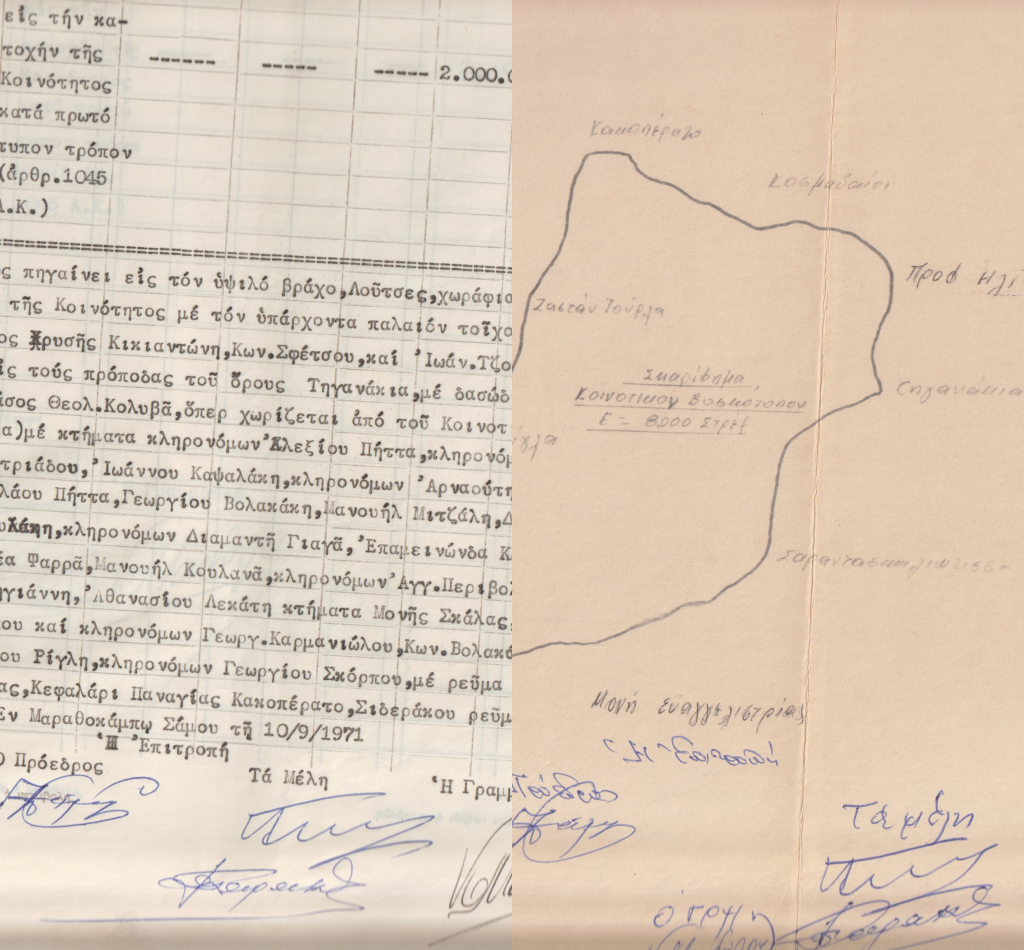 εἰς τήν κα-
τοχήν τῆς
Κοινότητος
κατά πρωτό
τυπον τρόπον
(ἀρθρ.1045
Α.Κ.)
------ ----- ----- 2.000.0
ς πηγαίνει εἰς τόν ὑψιλό βράχο,Λοῦτσες,χωράφια
τῆς Κοινότητος μέ τόν ὑπάρχοντα παλαιόν τοῖχο
ος Χρυσῆς Κικιαντώνη,Κων.Σφέτσου,καί Ἰωάν.Τζο
ἰς τούς πρόποδας τοῦ ὄρους Τηγανάκια,μέ δασώδ
άσος Θεολ.Κολυβᾶ,ὅπερ χωρίζεται ἀπό τοῦ Κοινοτ
α)μέ κτήματα κληρονόμων Ἀλεξίου Πήττα,κληρονόμ
τριάδου,Ἰωάννου Καψαλάκη,κληρονόμων Ἀρναούτη
λάου Πήττα,Γεωργίου Βολακάκη,Μανουήλ Μιτζάλη,Δ
υλάκη,κληρονόμων Διαμαντῆ Γιαγᾶ,Ἐπαμεινώνδα Κ
έα Ψαρρᾶ,Μανουήλ Κουλανᾶ,κληρονόμων Ἀγγ.Περιβολ
ηγιάννη,Ἀθανασίου Λεκάτη κτήματα Μονῆς Σκάλας,
ου καί κληρονόμων Γεωργ.Καρμανιώλου,Κων.Βολακά
ου Ρίγλη,κληρονόμων Γεωργίου Σκόρπου,μέ ρεῦμα
ας,Κεφαλάρι Παναγίας Κακοπέρατο,Σιδεράκου ρεῦμ
Ἐν Μαραθοκάμπῳ Σάμου τῇ 10/9/1971
Ἡ Ἐπιτροπή
Ὁ Πρόεδρος
Τά Μέλη
Ἡ Γραμμ
Κακοπέρατο
Κοσμαδαίοι
Προφ Ηλι
Ζαστάν Τούρλα
Σκαρίφημα
Κοινοτικού Βοσκοτόπου
Ε = 8000 Στρεμ
Τηγανάκια
ίγλα
Σαραντασκαλιώτισσ
Μονή Ευαγγελιστρίας
Ἡ Ἐπιτροπή
Τα μέλη